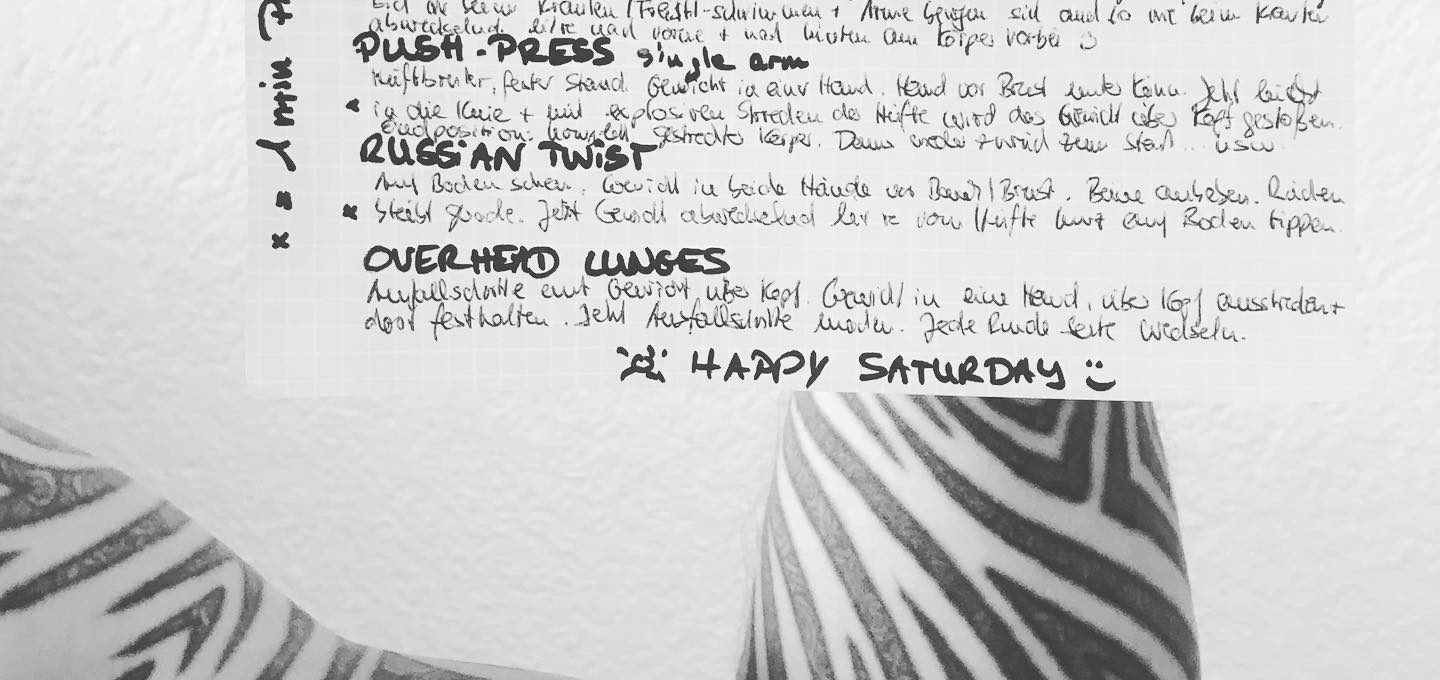 beim Kraulen/Freistil-schwimmen + Arme bewegen sich und so wie beim Kraulen
abwechselnd nach vorne + nach hinten am Körper vorbei ☺
PUSH-PRESS single arm
Hüftbreiter, fester Stand. Gewicht in einer Hand. Hand vor Brust unter Kinn. Jetzt leicht
x in die Knie + mit explosiven Strecken der Hüfte wird das Gewicht über Kopf gestoßen.
Endposition: gestreckter Körper. Dann wieder zurück zum Start... usw.
RUSSIAN TWIST
Auf Boden Gewicht in beide Hände vor Bauch/Brust. Beine anheben. Rücken
x bleibt gerade. Jetzt Gewicht abwechselnd li + re von Hüfte kurz auf Boden tippen.
OVERHEAD LUNGES
Ausfallschritte mit Gewicht über Kopf. Gewicht in eine Hand, über Kopf ausstrecken +
dort festhalten. Jetzt Ausfallschritte machen. Jede Runde Seite wechseln.
HAPPY SATURDAY ☺
x = 1 min